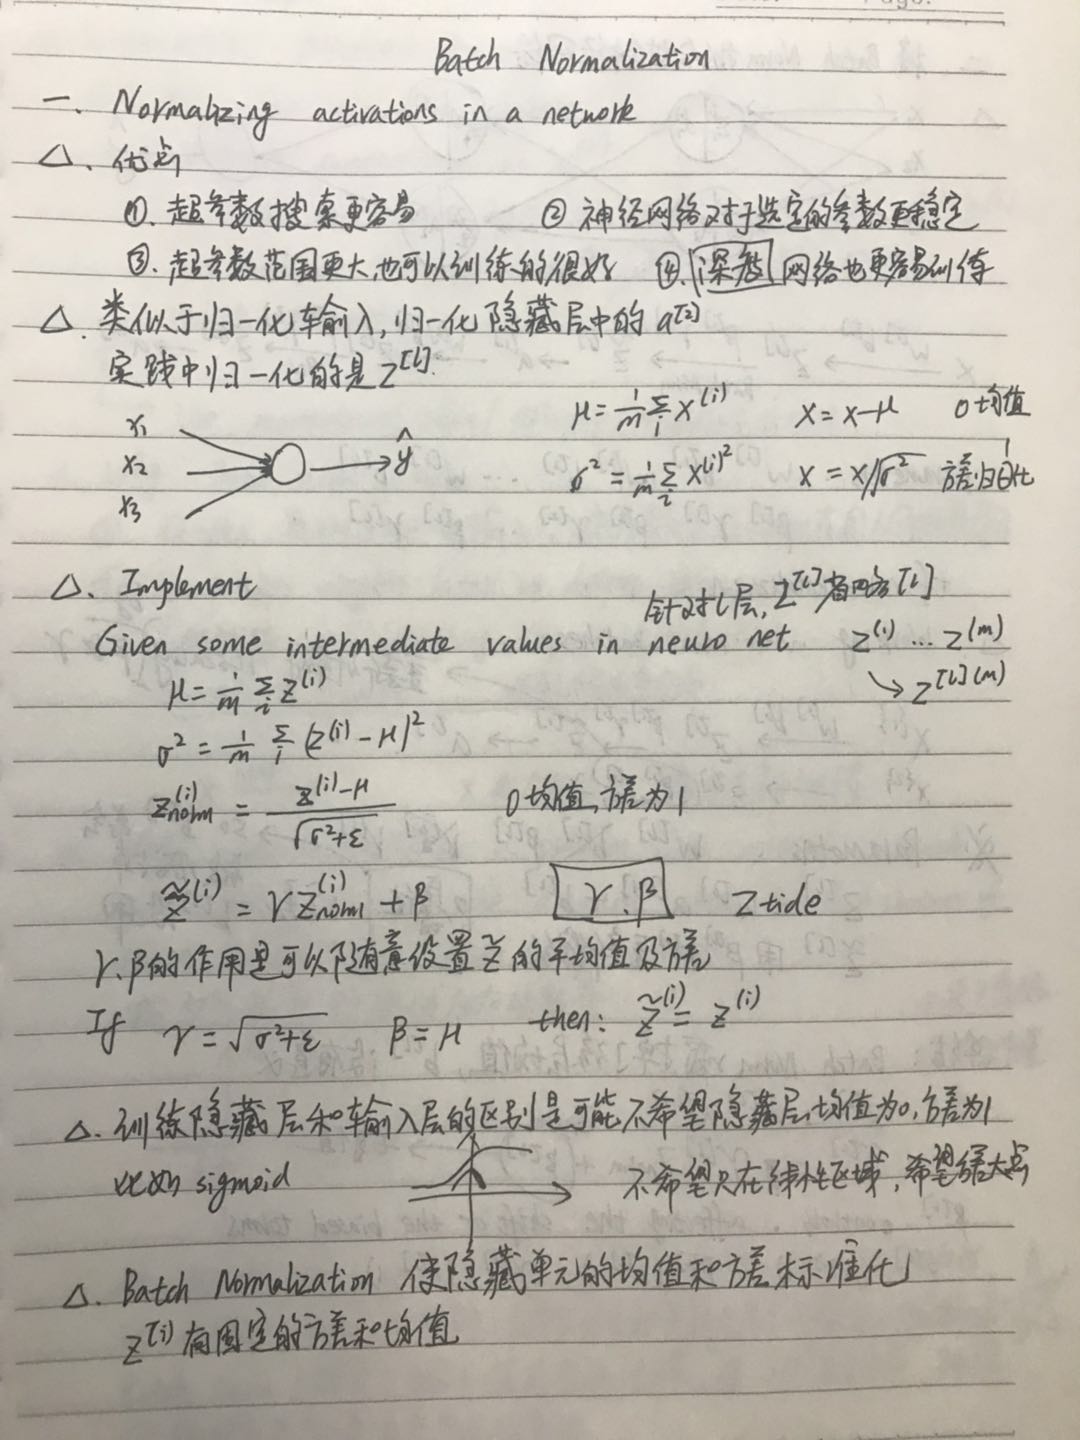 Batch Normalization
一. Normalizing activations in a network
△. 优点
①. 超参数搜索更容易 ② 神经网络对于选定的参数更稳定
③. 超参数范围更大,也可以训练的很好 ④. 深层 网络也更容易训练
△. 类似于归一化输入,归一化隐藏层中的 a[2]
实践中归一化的是 Z[l].
x₁
x₂ ŷ
x₃
μ = 1/m Σᵢ x⁽ⁱ⁾ x = x-μ 0均值
σ² = 1/m Σᵢ x⁽ⁱ⁾² x = x/√σ² 方差归一化
△. Implement
针对l层, Z[l]省略[l]
Given some intermediate values in neuro net Z⁽ⁱ⁾ ... Z⁽ᵐ⁾
→ Z[l](m)
μ = 1/m Σᵢ Z⁽ⁱ⁾
σ² = 1/m Σᵢ (Z⁽ⁱ⁾ - μ)²
Z⁽ⁱ⁾norm = (Z⁽ⁱ⁾-μ)/√(σ²+ε) 0均值,方差为1
Z̃⁽ⁱ⁾ = γ Z⁽ⁱ⁾norm + β γ.β Z tide
γ.β的作用是可以随意设置 Z̃ 的平均值及方差
If γ = √(σ²+ε) β = μ then: Z̃⁽ⁱ⁾ = Z⁽ⁱ⁾
△. 训练隐藏层和输入层的区别是可能不希望隐藏层均值为0,方差为1
比如 sigmoid 不希望只在线性区域,希望方差大点
△. Batch Normalization 使隐藏单元的均值和方差标准化
Z⁽ⁱ⁾ 有固定的方差和均值